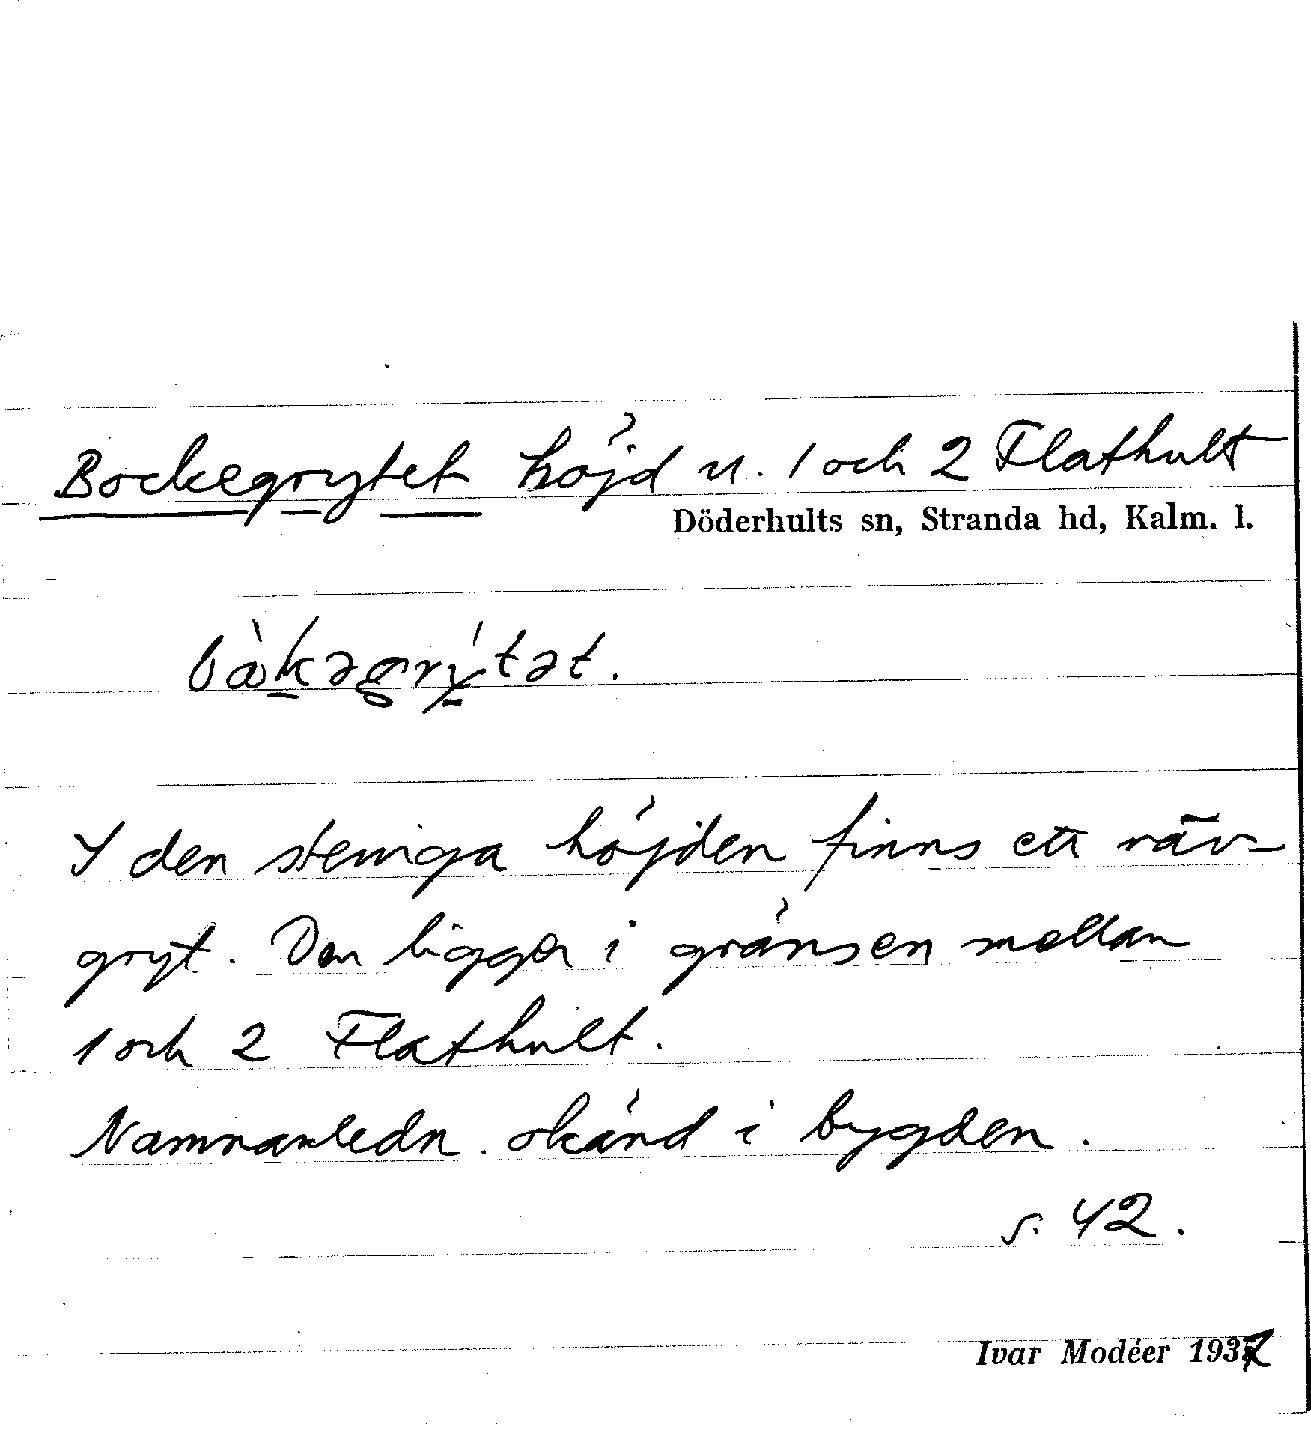 Bockegrytet höjd u. 1 och 2 Flathult
Döderhults sn, Stranda hd, Kalm. l.
I den steniga höjden finns ett räv-
gryt. Den ligger i gränsen mellan
1 och 2 Flathult.
Namnanledn. okänd i bygden.
s. 42.
Ivar Modéer 1937